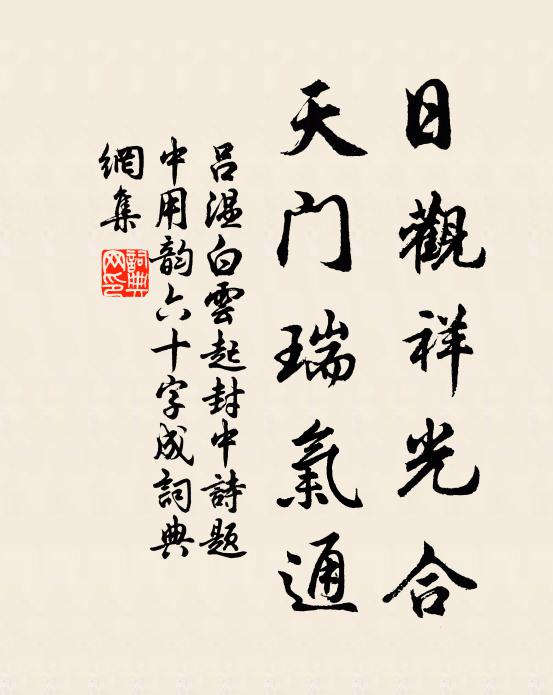 日觀祥光合
天门瑞氣通
吕温白雲起封中詩题
中用韵六十字成詞典
網集
詞典网印